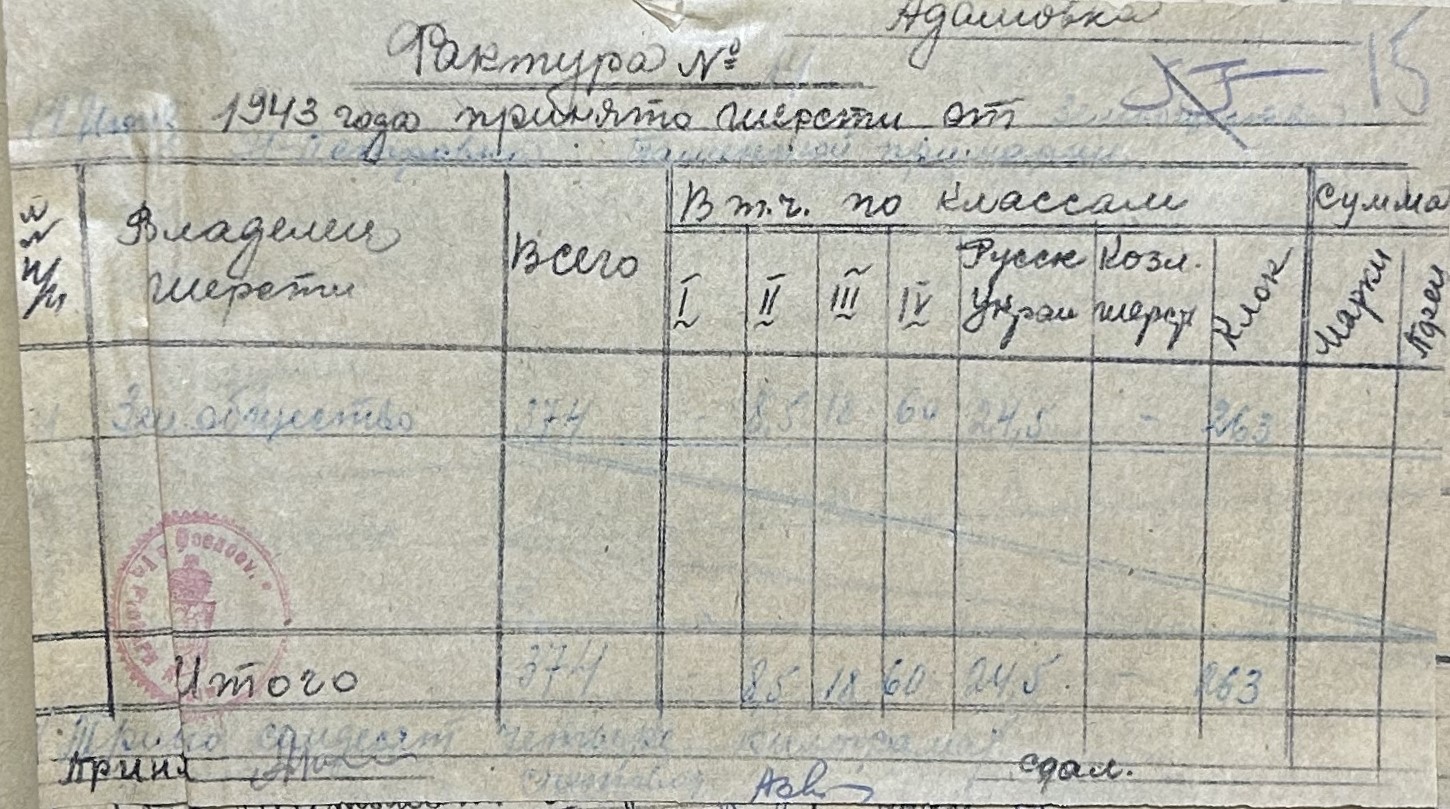 Адамовка
15
Фактура №
1943 года принято шерсти от
Владелец шерсти Всего В т.ч. по классам Сумма
I II III IV Русск Украи Козл. шерст Клок Марки
Зем. общество 374 - 8,5 18 60 24,5 - 263
Итого 374 - 8,5 18 60 24,5 - 263
Триста семдесят четыре килограма
Принял сдал.